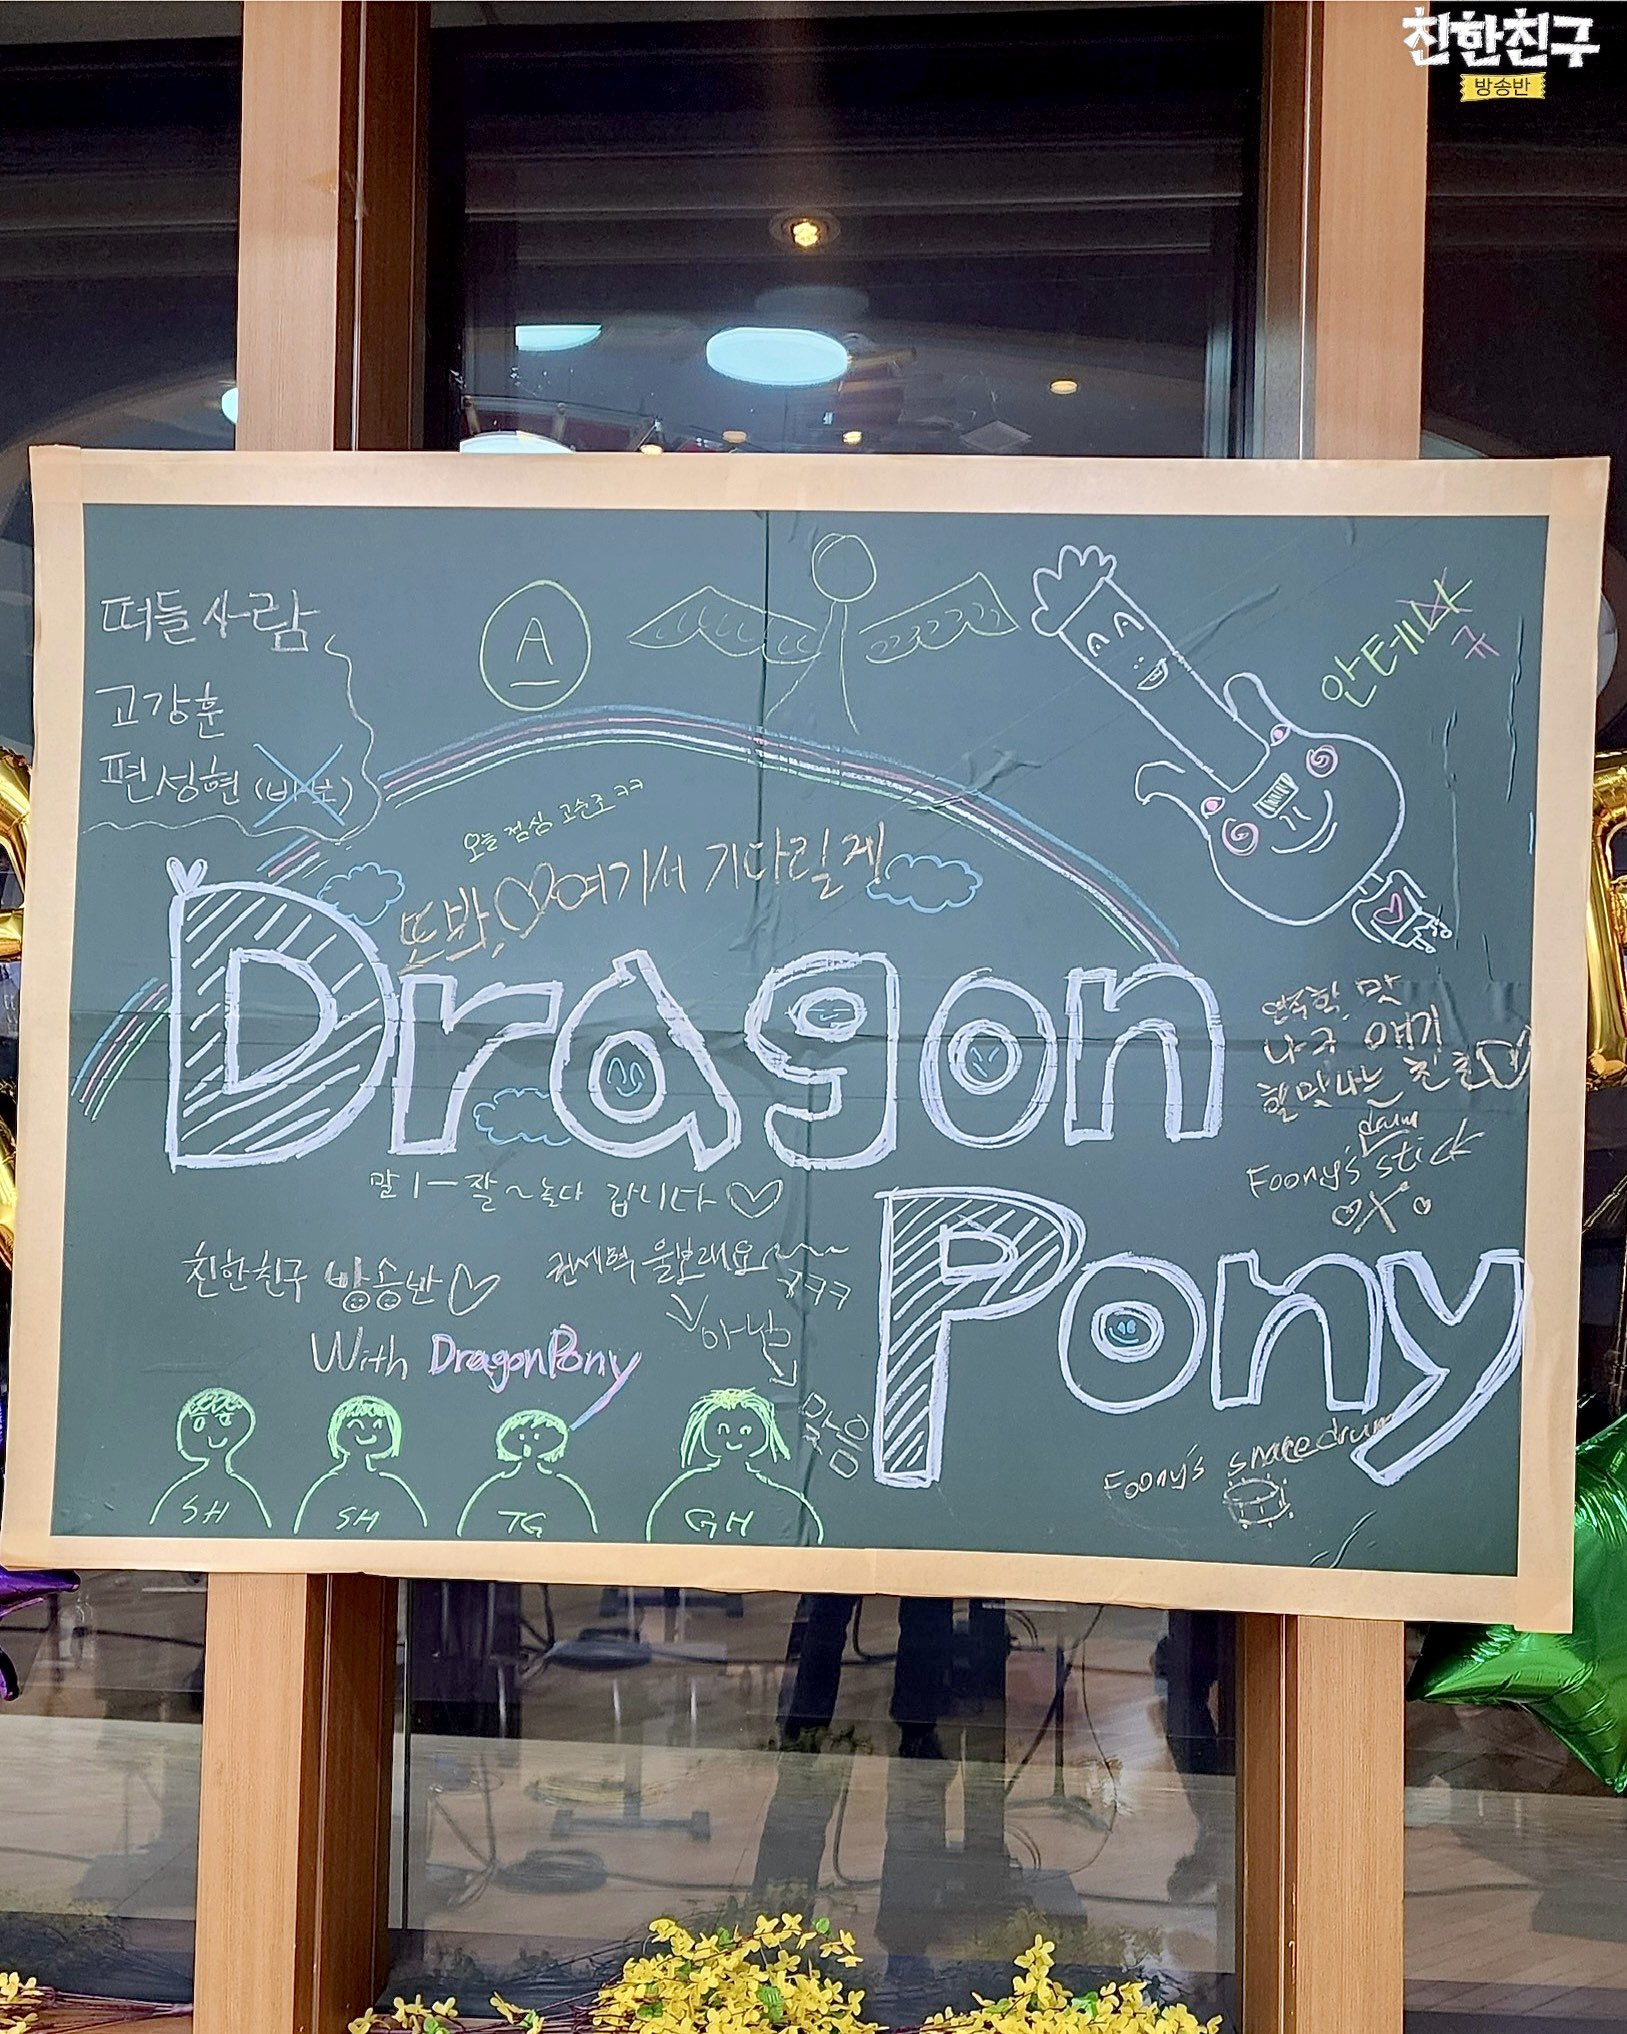 친한친구
방송반
떠들 사람
고강훈
편성현
A
안테
규
오늘 점심 고순조 ㅋㅋ
또 봐, 여기서 기다릴게
Dragon
연주학, 맛
나구 얘기
할 맛 나는 친구
drum
Foony's stick
말 1- 잘~ 놀다 갑니다
Pony
친한친구 방송반
권세혁 울보래요
ㅋㅋㅋ
아님
With DragonPony
맞음
Foony's snare drum
SH
SH
TG
GH